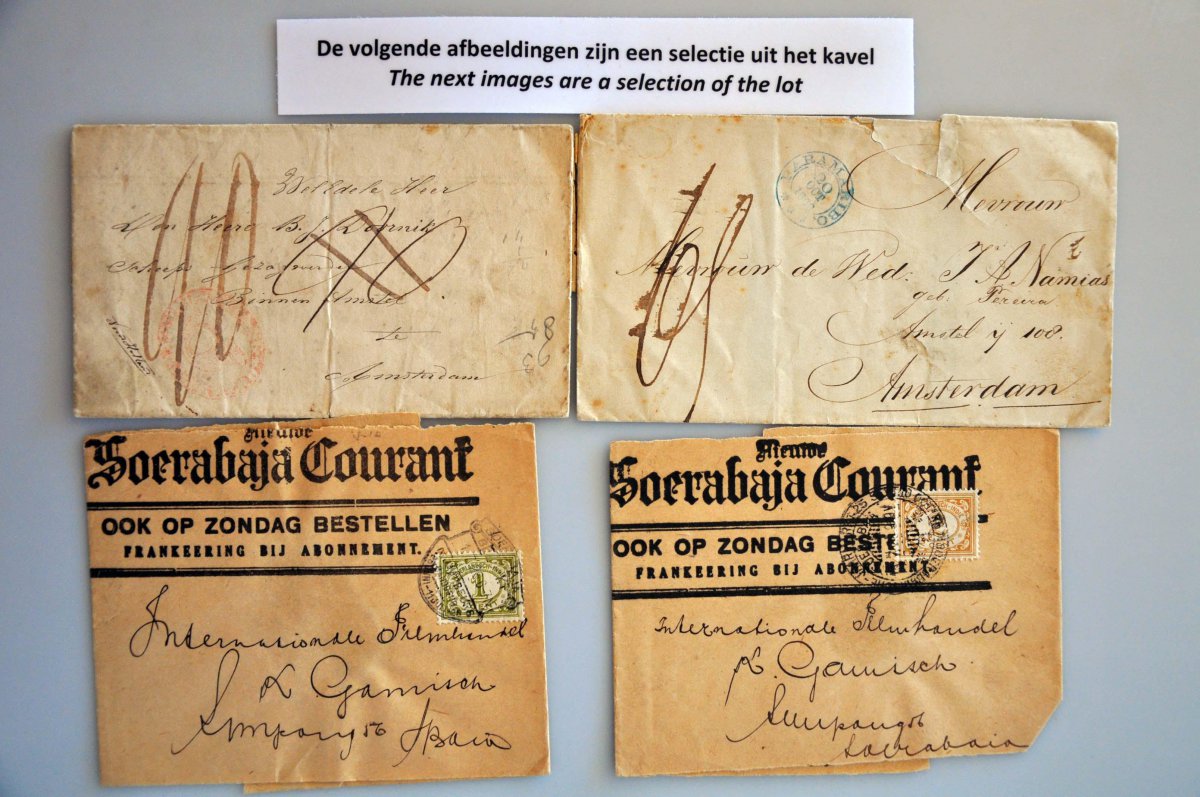 De volgende afbeeldingen zijn een selectie uit het kavel
The next images are a selection of the lot
WelEdele Heer
Den Heere B. J. Doornik
Binnen Amstel
te
Amsterdam
PARAMARIBO
20
OCT
Mevrouw
Mevrouw de Wed: J. A. Namias
geb: Pereira
Amstel ij 108.
Amsterdam
Nieuwe
Soerabaja Courant
OOK OP ZONDAG BESTELLEN
FRANKEERING BIJ ABONNEMENT.
1
Internationale Filmhandel
K Gamisch
Simpang 56 Sbaia
Nieuwe
Soerabaja Courant.
OOK OP ZONDAG BESTE
FRANKEERING BIJ ABONNEMENT
Internationale Filmhandel
K. Gamisch
Simpang 56
Soerabaia